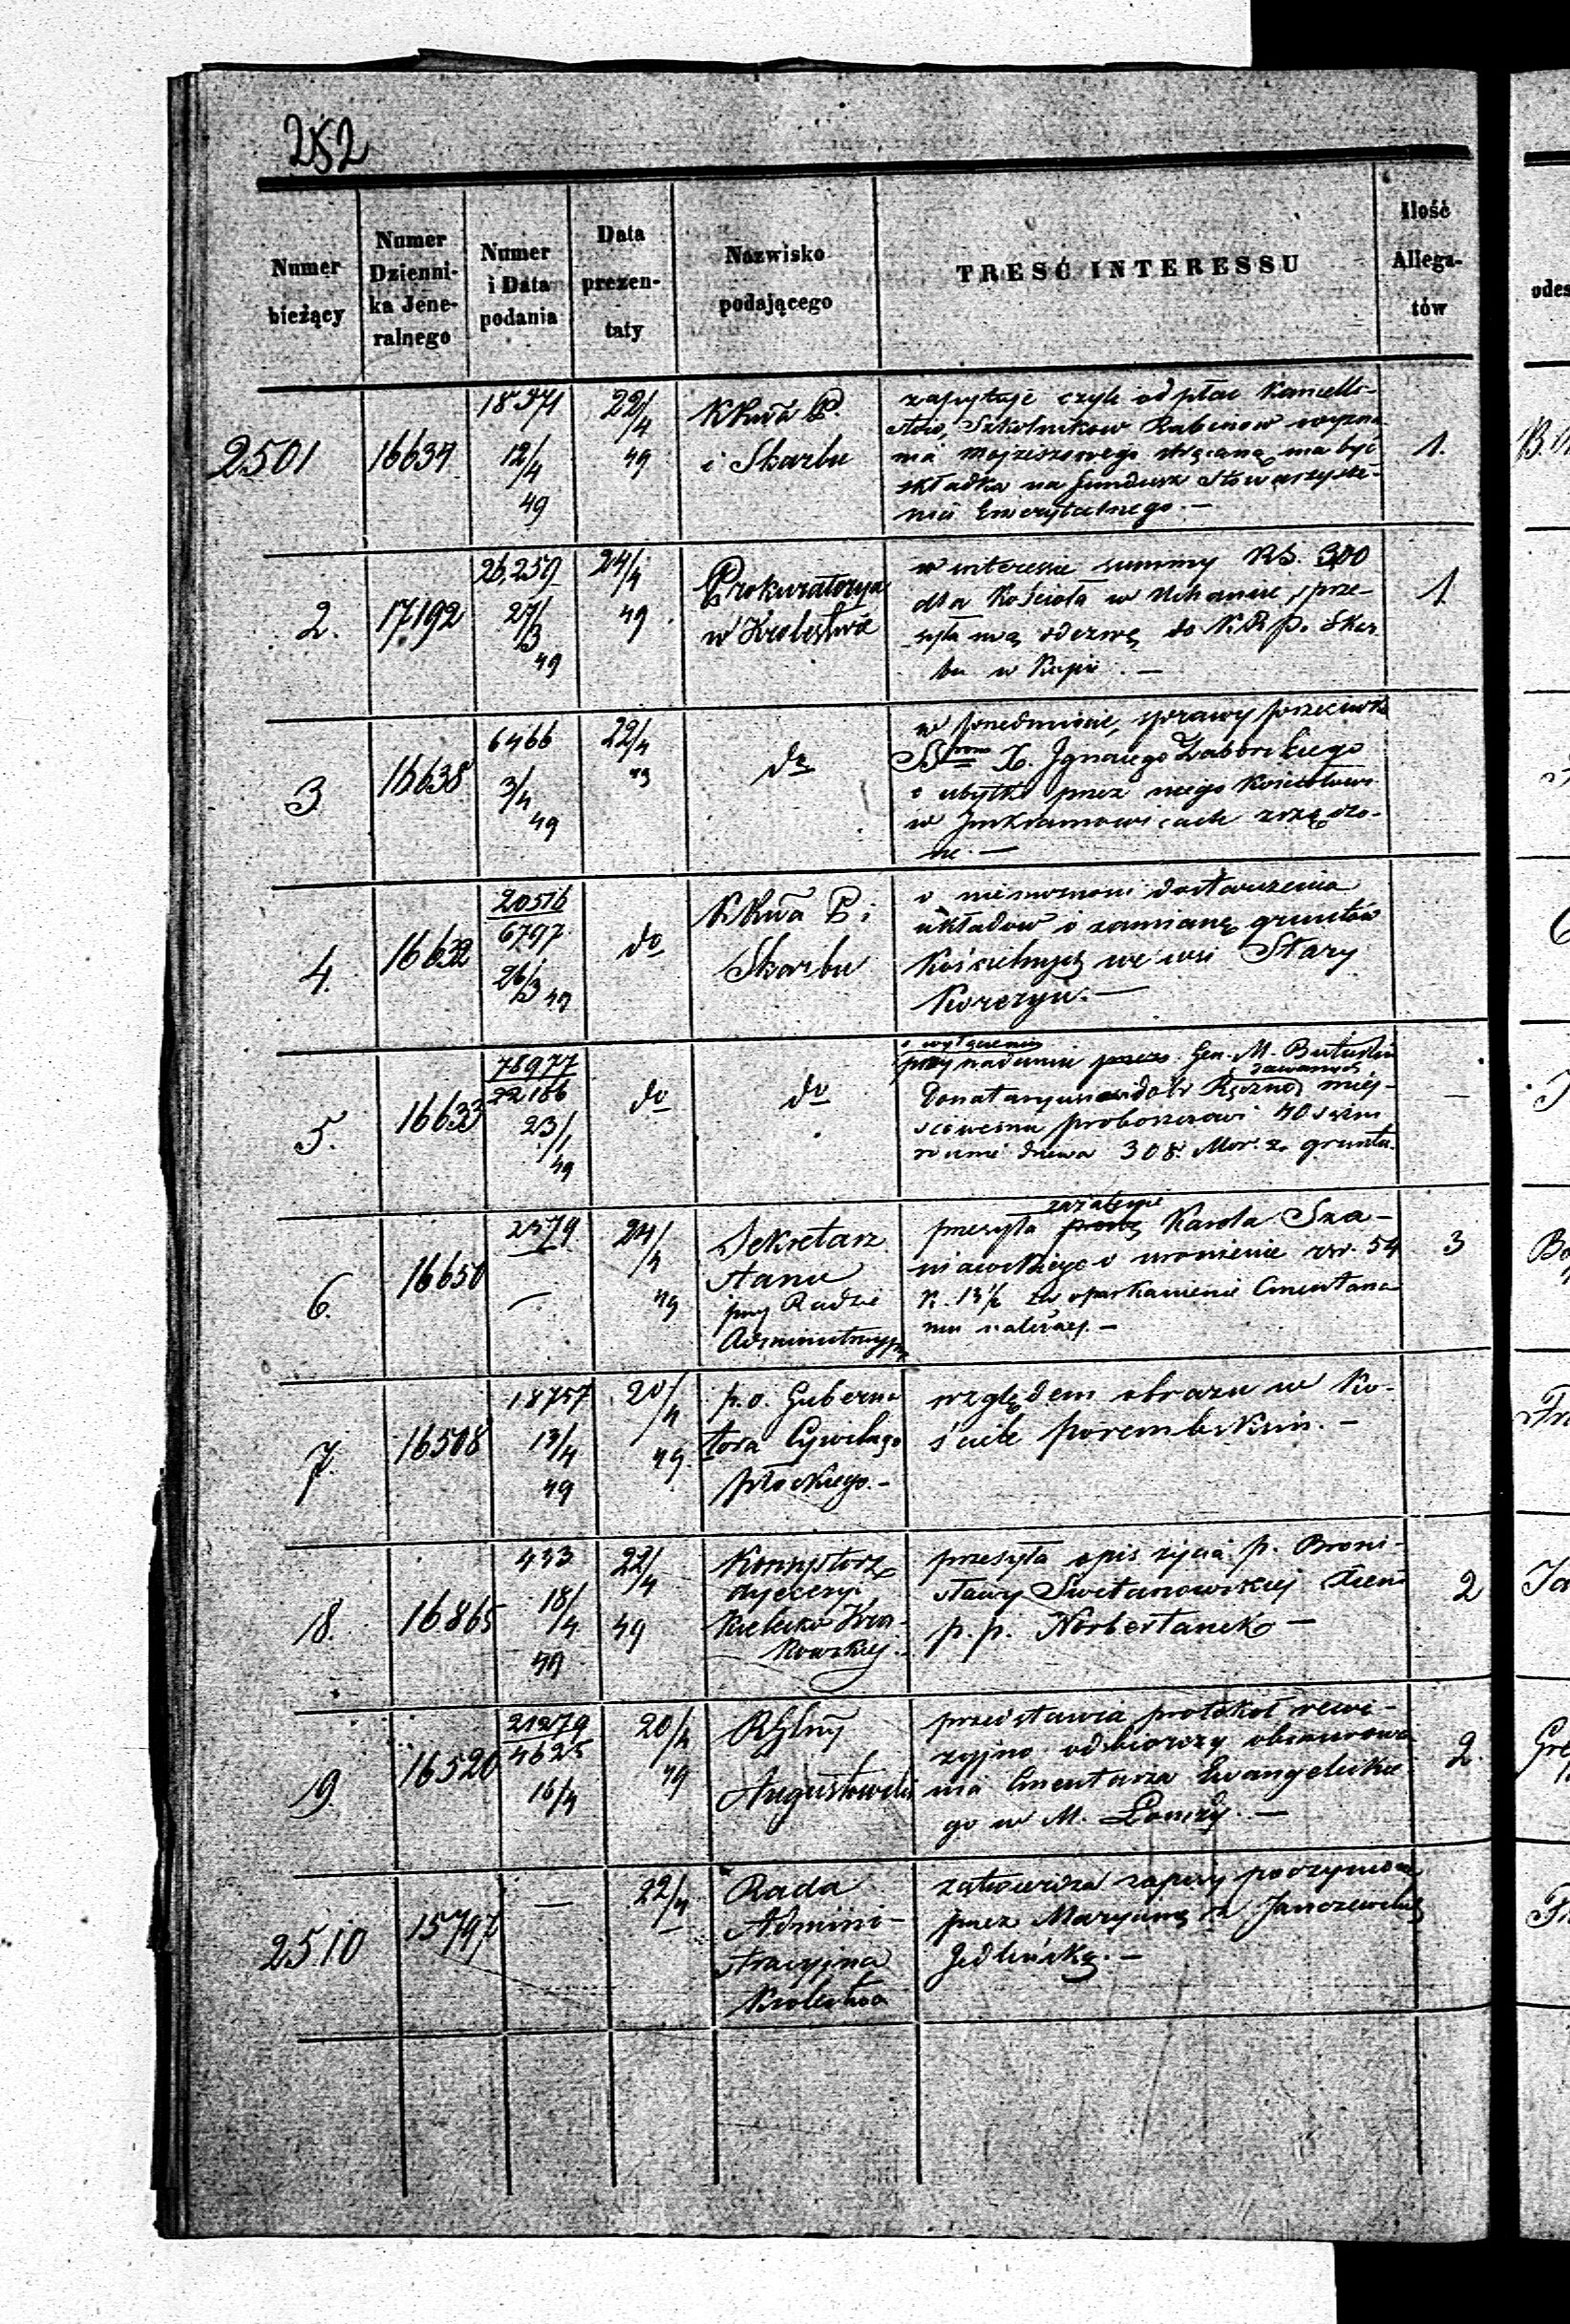 252
Numer bieżący
Numer Dzienni-ka Jene-ralnego
Numer i Data podania
Data prezen-taty
Nazwisko podającego
TREŚĆ INTERESSU
Ilość Allega-tów
odes
2501
16634
12/4
49
22/4
49
i Skarbu
zapytuje czyli od płac Kancelli-
stów, Szkolników Rabinow wyzna
nia Mojżeszowego strącaną ma być
składka na fundusz Stowarzysze-
nia Emerytalnego. —
1.
2.
17192
26,259
27/3
49
24/4
49
Prokuratorya
w Królestwie
w interesie summy RS. 300
dla Kościoła w
syła odezwę do K R p. Skar
bu w Kopii. —
1
3
16638
6466
3/4
49
22/4
49
do
w przedmiocie, sprawy przeciwko
X. Ignacego Zaborskiego
o ubytki przez niego Kościołowi
w Imkramowicach zrządzo-
ne. —
4.
16632
20516
6797
26/3 49
do
Skarbu
o niemożności dostarczenia
układow o zamianę gruntów
Kościelnych we wsi Stary
Korczyn. —
5.
16633
78977
22186
23/1
49
do
do
o wyłączeniu
przy nadaniu przez Gen. M.
dobr Ręczno zwanych miej-
scowemu proboszczowi 40
drzewa 308 Mor. gruntu.
—
6.
16650
2579
—
24/4
49
Sekretarz
Stanu
przy Radzie
Administracyjnej
zażalenie
przesyła prośbę Karola Sza-
niawskiego o wrócenie rsr. 54
k. 13½ za oparkanienie Cmentarza
mu należący. —
3
7.
16508
18757
13/4
49
20/4
49.
p. o. Guberna
tora Cywilnego
Płockiego. —
względem obrazu w Ko-
ściele porembskim. —
8.
16865
443
18/4
49
22/4
49
Konsystorz
dyecezyi
Kielecko Kra-
kowskiej.
przesyła opis życia p. Broni-
sławy Xieni
p. p. Norbertanek —
2
9.
16520
21279
4625
16/4
20/4
49
Augustowski
przedstawia protokoł rewi-
zyjno odbiorczy obmurowa
nia Cmentarza Ewangelickie
go w M. Łomży. —
2.
2510
15797
—
22/4
—
Rada
Admini-
stracyjna
Królestwa
zatwierdza zapisy poczynione
przez Maryannę z Janczewskich
Jedlińską. —